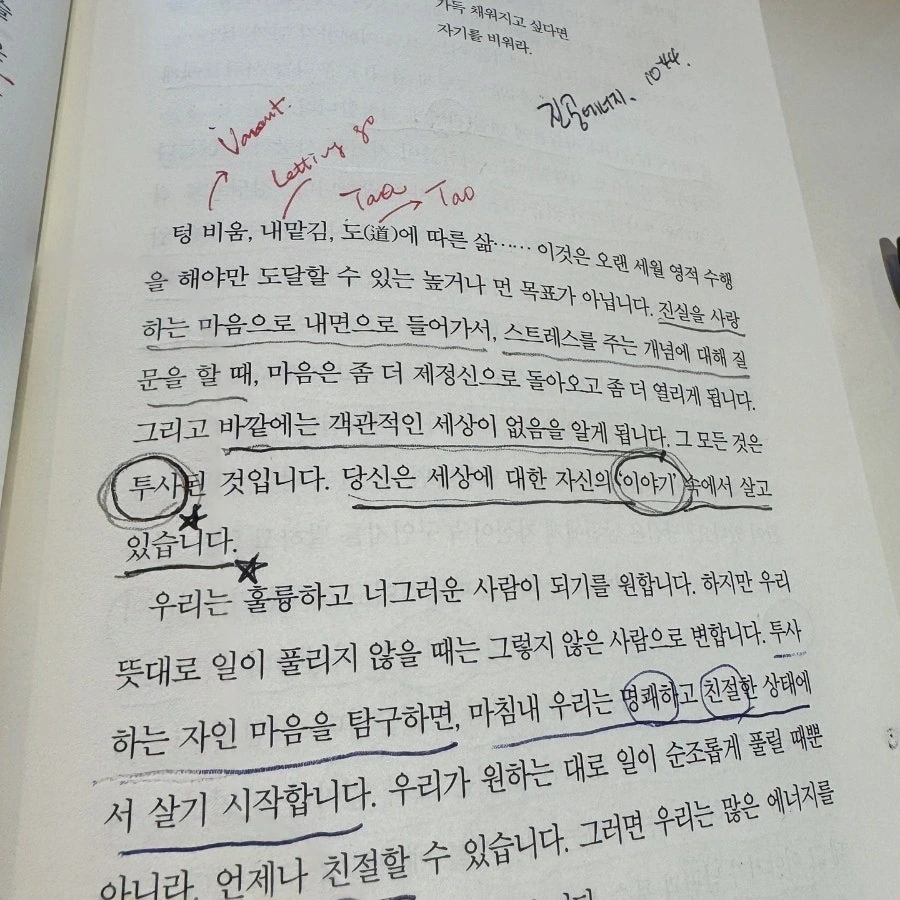 가득 채워지고 싶다면
자기를 비워라.
진공에너지. 10⁴⁴.
Vacant.
Letting go
Tao → Tao
텅 비움, 내맡김, 도(道)에 따른 삶…… 이것은 오랜 세월 영적 수행
을 해야만 도달할 수 있는 높거나 먼 목표가 아닙니다. 진실을 사랑
하는 마음으로 내면으로 들어가서, 스트레스를 주는 개념에 대해 질
문을 할 때, 마음은 좀 더 제정신으로 돌아오고 좀 더 열리게 됩니다.
그리고 바깥에는 객관적인 세상이 없음을 알게 됩니다. 그 모든 것은
투사된 것입니다. 당신은 세상에 대한 자신의 '이야기' 속에서 살고
있습니다.
우리는 훌륭하고 너그러운 사람이 되기를 원합니다. 하지만 우리
뜻대로 일이 풀리지 않을 때는 그렇지 않은 사람으로 변합니다. 투사
하는 자인 마음을 탐구하면, 마침내 우리는 명쾌하고 친절한 상태에
서 살기 시작합니다. 우리가 원하는 대로 일이 순조롭게 풀릴 때뿐
아니라, 언제나 친절할 수 있습니다. 그러면 우리는 많은 에너지를